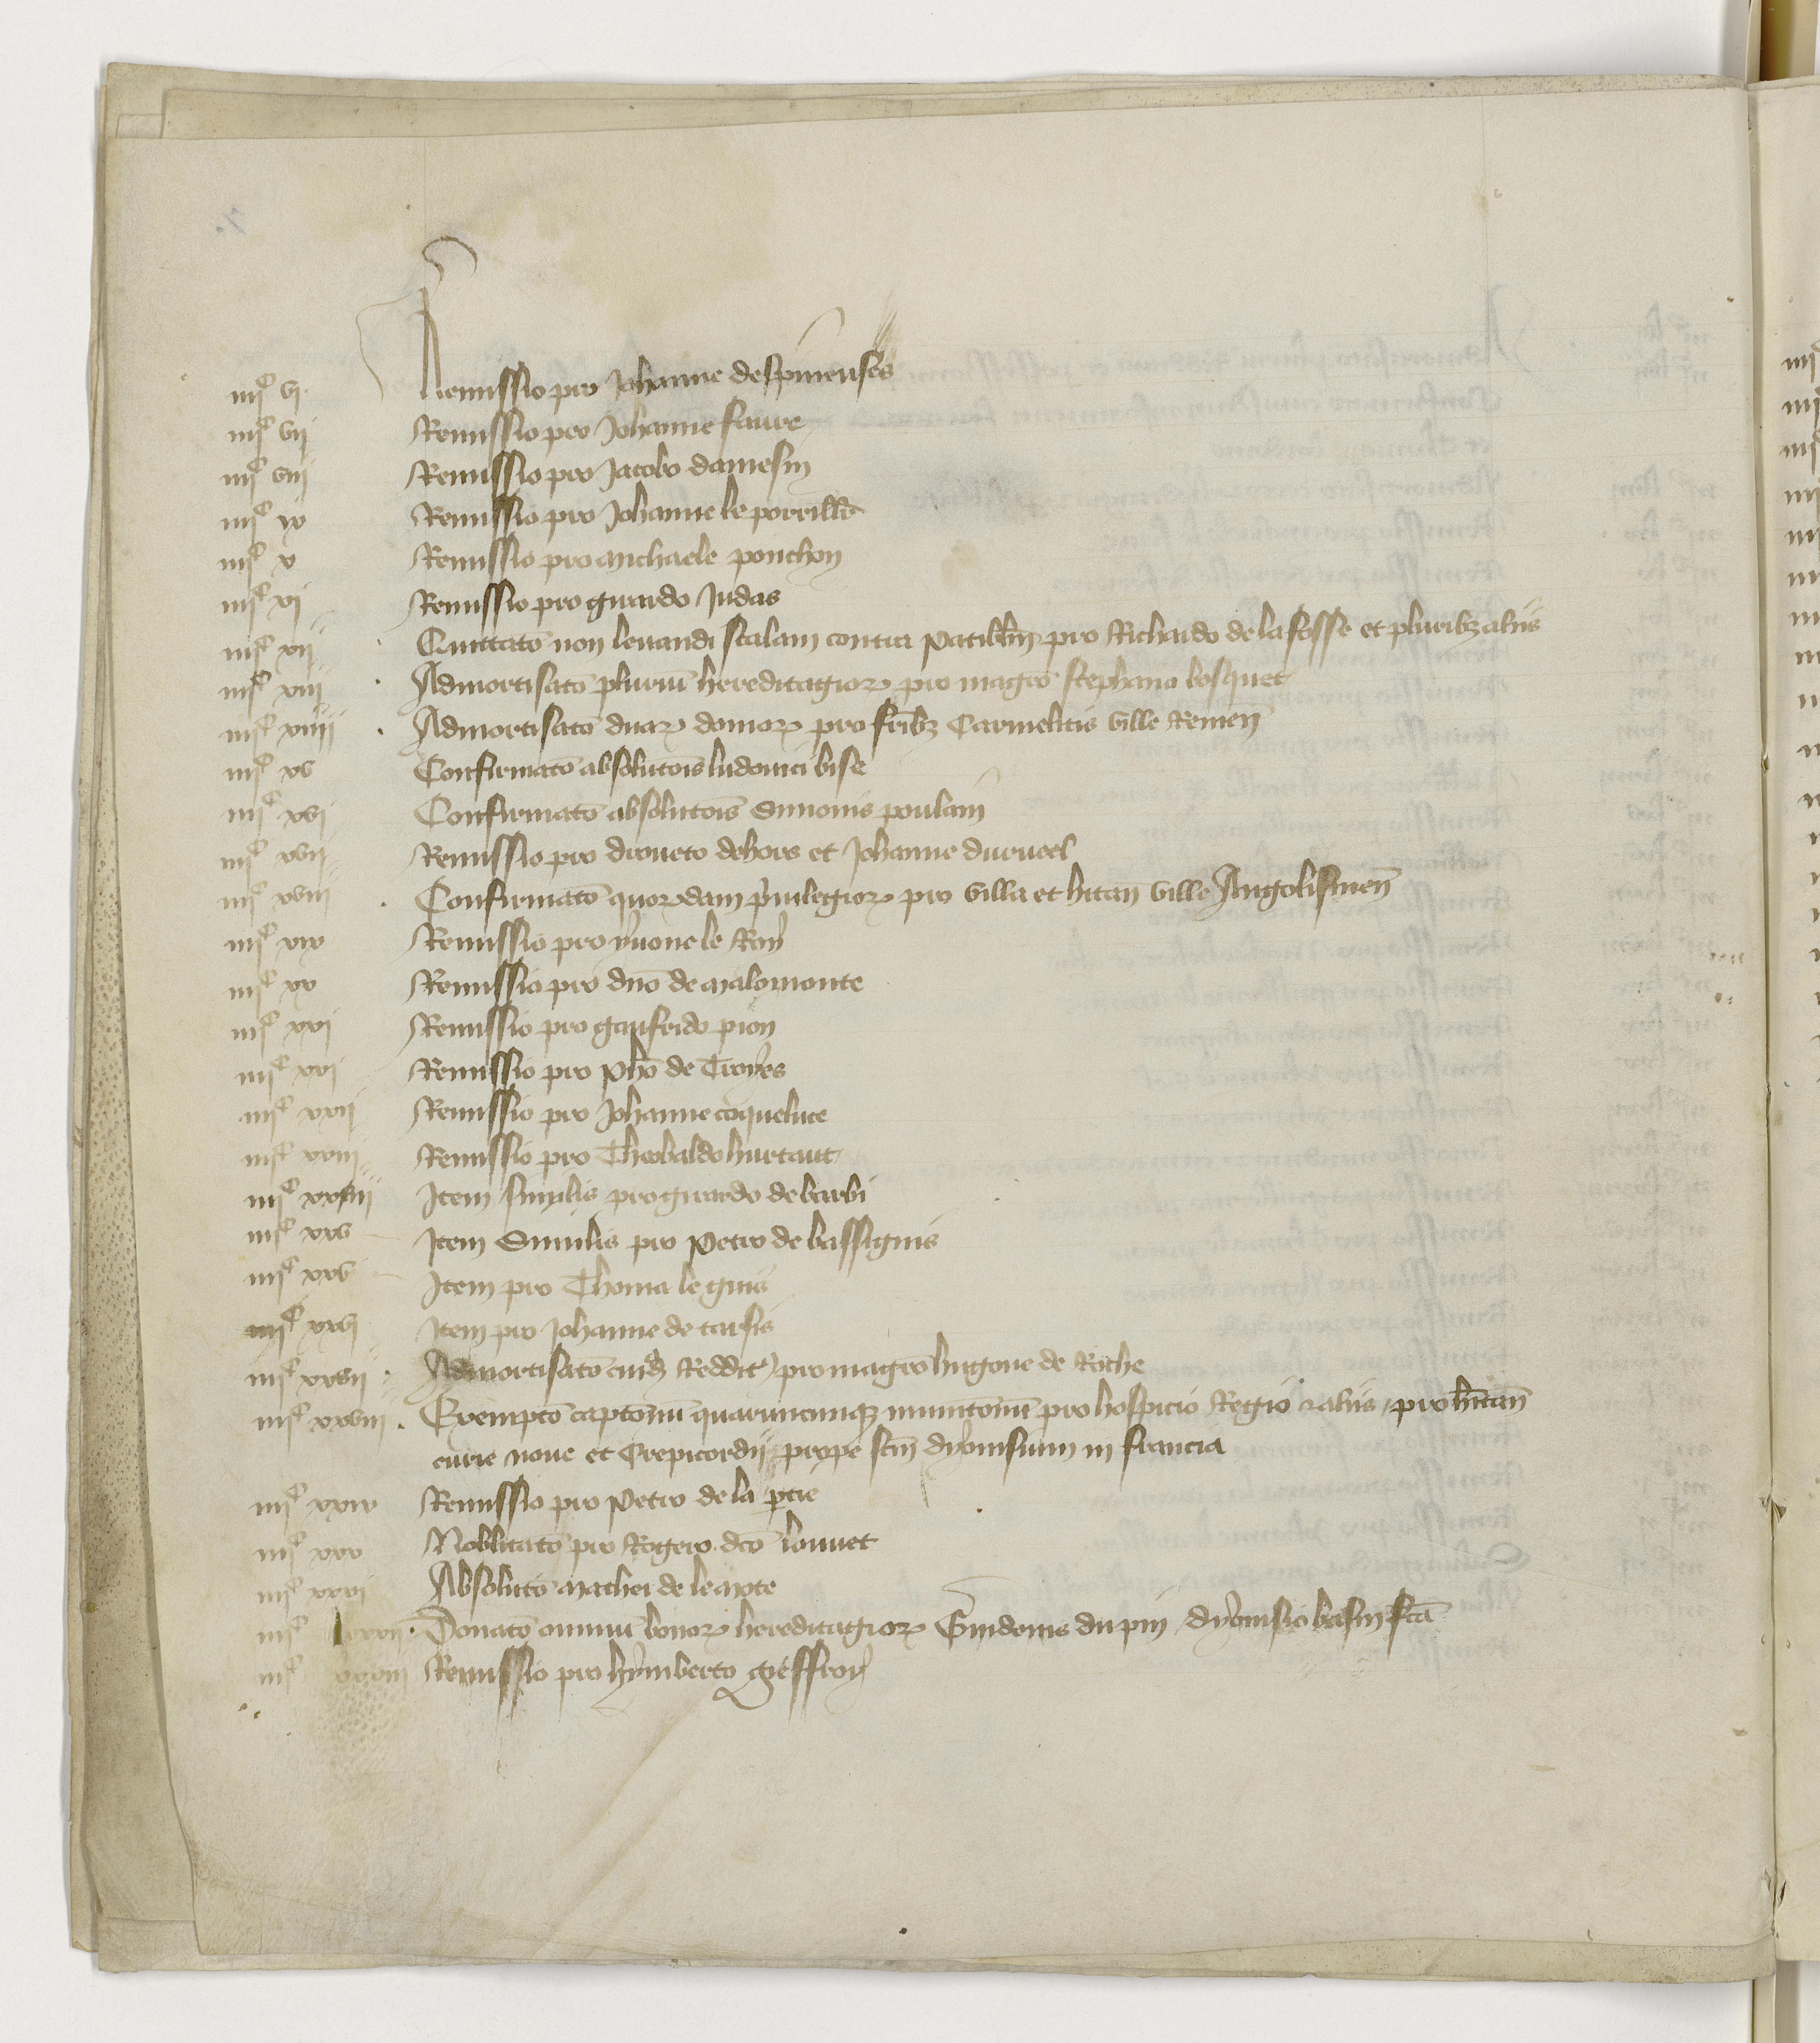 iiijᶜ vj Remissio pro Johanne despineuses
iiijᶜ vij Remissio pro Johanne faure
iiijᶜ viij Remissio pro Jacobo damesin
iiijᶜ ix Remissio pro Johanne le porcill̃e
iiijᶜ x Remissio pro Michaele ponchon
iiijᶜ xj Remissio pro girardo Judas
iiijᶜ xij Quittatõ non levandi scalam contra patibl̃m pro Richardo de la fosse et pluribꝫ aliis
iiijᶜ xiij Admortisatõ pluriũ hereditagioꝝ pro magrõ stephano bosquet
iiijᶜ xiiij Admortisatõ duaꝝ domoꝝ pro fr̃ibꝫ Carmelitis ville Remeñ
iiijᶜ xv Confirmatõ absolutoĩs ludovici bise
iiijᶜ xvj Confirmatõ absolutoĩs Simonis poulain
iiijᶜ xvij Remissio pro droueto dehors et Johanne durueel
iiijᶜ xviij Confirmatõ quoꝝdam p̃vilegioꝝ pro villa et hitañ ville Angolismeñ
iiijᶜ xix Remissio pro yvone le Roy
iiijᶜ xx Remissio pro dño de Malomonte
iiijᶜ xxj Remissio pro gaufrido pion
iiijᶜ xxj Remissio pro Phõ de Troyes
iiijᶜ xxij Remissio pro Johanne coqueluce
iiijᶜ xxiij Remissio pro Theobaldo hurtaut
iiijᶜ xxiiij Item similis pro girardo de barbi
iiijᶜ xxv Item Similis pro Petro de bassignis
iiijᶜ xxv Item pro Thoma le gius
iiijᶜ xxvj Item pro Johanne de tarsis
iiijᶜ xxvij Admortisatõ cuiꝰd̃ Reddit̃ pro magrõ hugone de Roche
iiijᶜ xxviij Exemptõ captonũ quarumcunqꝫ munitonũ pro hospicio Regio ⁊ aliis pro hitañ
curie nove et Crepicordii prope sc̃m dyonisium in francia
iiijᶜ xxix Remissio pro Petro de la p̃crie
iiijᶜ xxx Nobilitatõ pro Rogero dc̃o louvet
iiijᶜ xxxj Absolutõ Mathei de le Mote
iiijᶜ xxxij Donatõ omniũ bonoꝝ hereditagioꝝ Guidonis du pin dyonisio basin fc̃ã
iiijᶜ xxxiij Remissio pro hymberto gieffroy